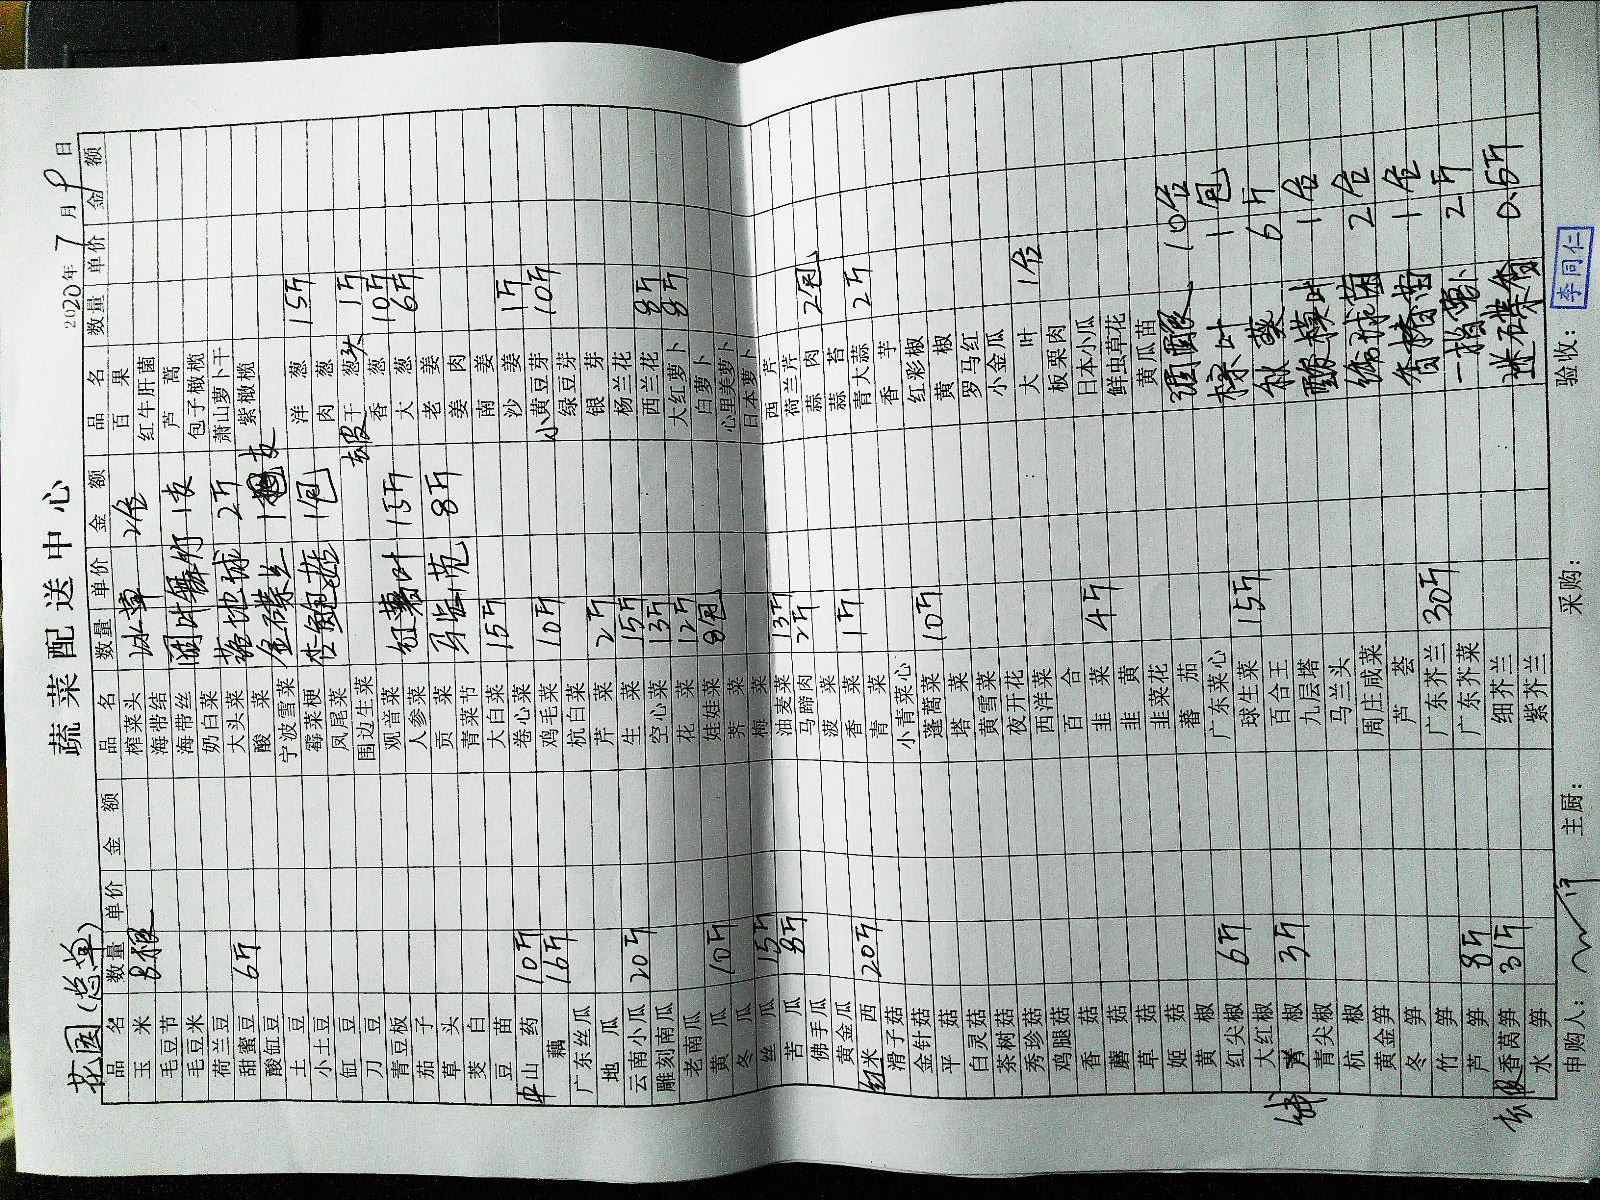 蔬菜配送中心
花园(总单) 2020年7月9日
品名 数量 单价 金额 品名 数量 单价 金额 品名 数量 单价 金额
玉米 8根 榨菜头 冰草 2合 百果
毛豆节 海带结 红牛肝菌
毛豆米 海带丝 1支 芦蒿
荷兰豆 奶白菜 包子橄榄
甜蜜豆 6斤 大头菜 落地球 2斤 萧山萝卜干
酸缸豆 酸菜 金碟兰 1支 紫橄榄
土豆 宁波雪菜
小土豆 霉菜梗 杏鲍菇 1包 洋葱 15斤
缸豆 凤尾菜 肉葱
刀豆 围边生菜 干葱头 1斤
青豆板 观音菜 红薯叶 15斤 香葱 10斤
茄子 人参菜 大葱 6斤
草头 贡菜 马齿苋 8斤 老姜
茭白 青菜节 姜肉
豆苗 大白菜 15斤 南姜
山药 10斤 卷心菜 沙姜 1斤
藕 16斤 鸡毛菜 10斤 小黄豆芽 10斤
广东丝瓜 杭白菜 绿豆芽
地瓜 芹菜 2斤 银芽
云南小瓜 20斤 生菜 15斤 杨兰花
雕刻南瓜 空心菜 13斤 西兰花 8斤
老南瓜 花菜 12斤 大红萝卜 8斤
黄瓜 10斤 娃娃菜 8包 白萝卜
冬瓜 荠菜 心里美萝卜
丝瓜 15斤 梅菜 日本萝卜
苦瓜 8斤 油麦菜 13斤 西芹
佛手瓜 马蹄肉 2斤 荷兰芹
黄金瓜 菠菜 蒜肉 2包
红米西 20斤 香菜 1斤 蒜苔
滑子菇 青菜 青大蒜 2斤
金针菇 小青菜心 香芋
平菇 蓬蒿菜 10斤 红彩椒
白灵菇 塔菜 黄椒
茶树菇 黄雪菜 罗马红
秀珍菇 夜开花 小金瓜
鸡腿菇 西洋菜 大叶 1合
香菇 百合 板栗肉
蘑菇 韭菜 4斤 日本小瓜
草菇 韭黄 鲜虫草花
姬菇 韭菜花 黄瓜苗
黄椒 蕃茄 10合
红尖椒 6斤 广东菜心 棕叶 1包
大红椒 球生菜 15斤 秋葵 6斤
青椒 3斤 百合王 酸模叶 1合
青尖椒 九层塔 绣球菌 2合
杭椒 马兰头 香椿苗 1合
黄金笋 周庄咸菜 2斤
冬笋 芦荟 迷碟香 0.5斤
竹笋 广东芥兰 30斤
芦笋 8斤 广东芥菜
香莴笋 31斤 细芥兰
水笋 紫芥兰
申购人： 主厨： 采购： 验收： 李同仁